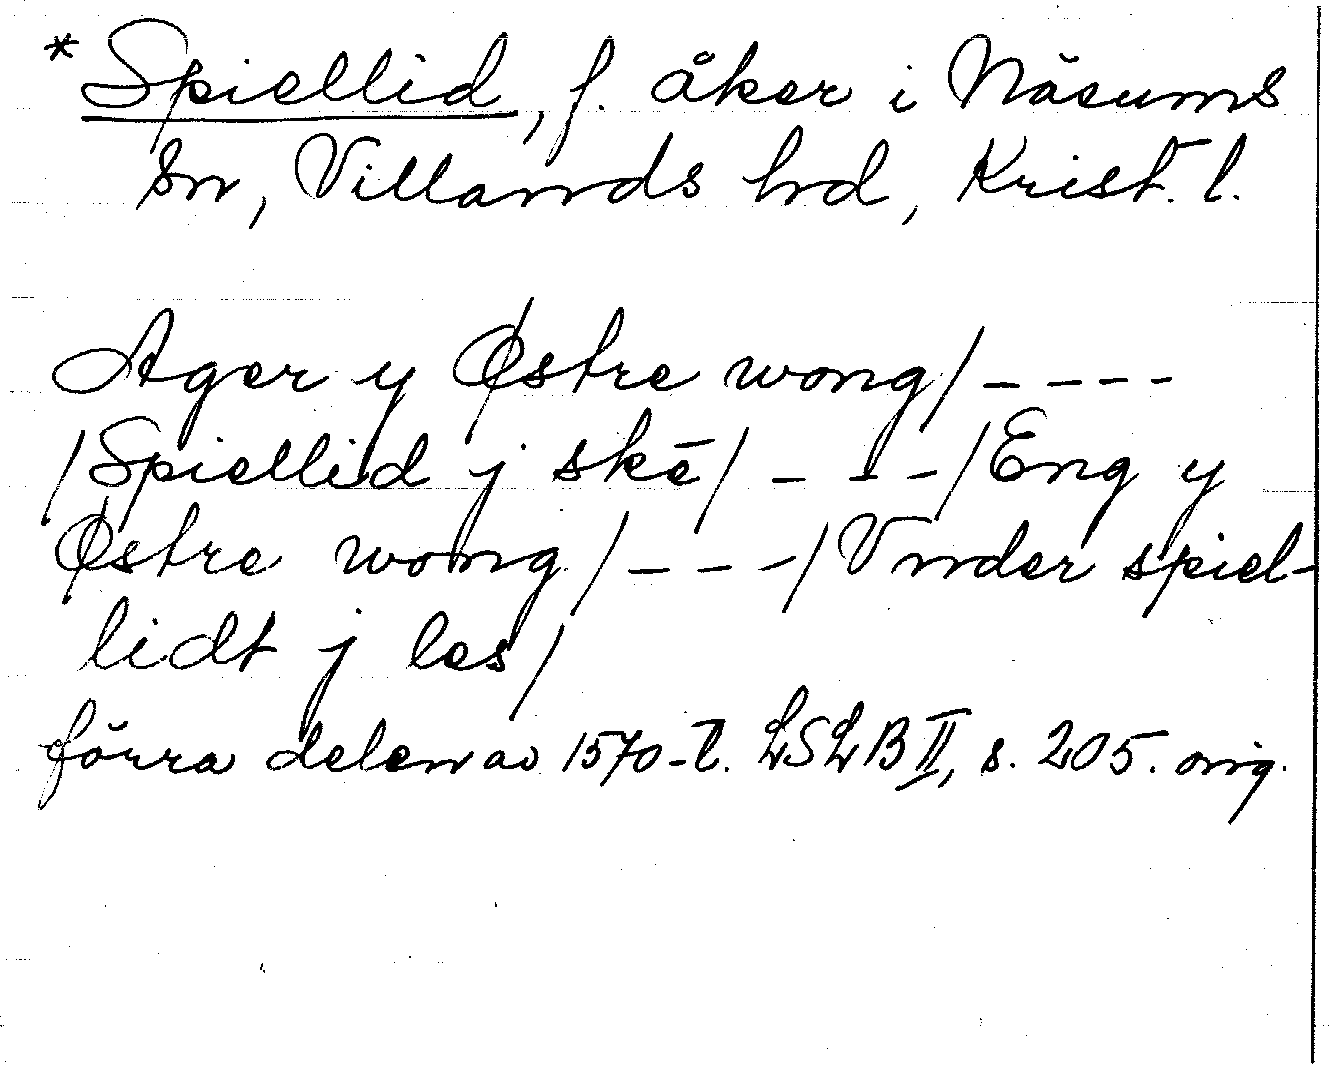 * Spiellid, f. åker i Näsums
sn, Villands hd, Krist. l.
Ager y Østre wong/ - - - -
/Spiellid j skē/ - - - /Eng y
Østre wong/ - - - /Vnder spiel-
lidt j les/
förra delen av 1570-t. LSLB II, s. 205. orig.